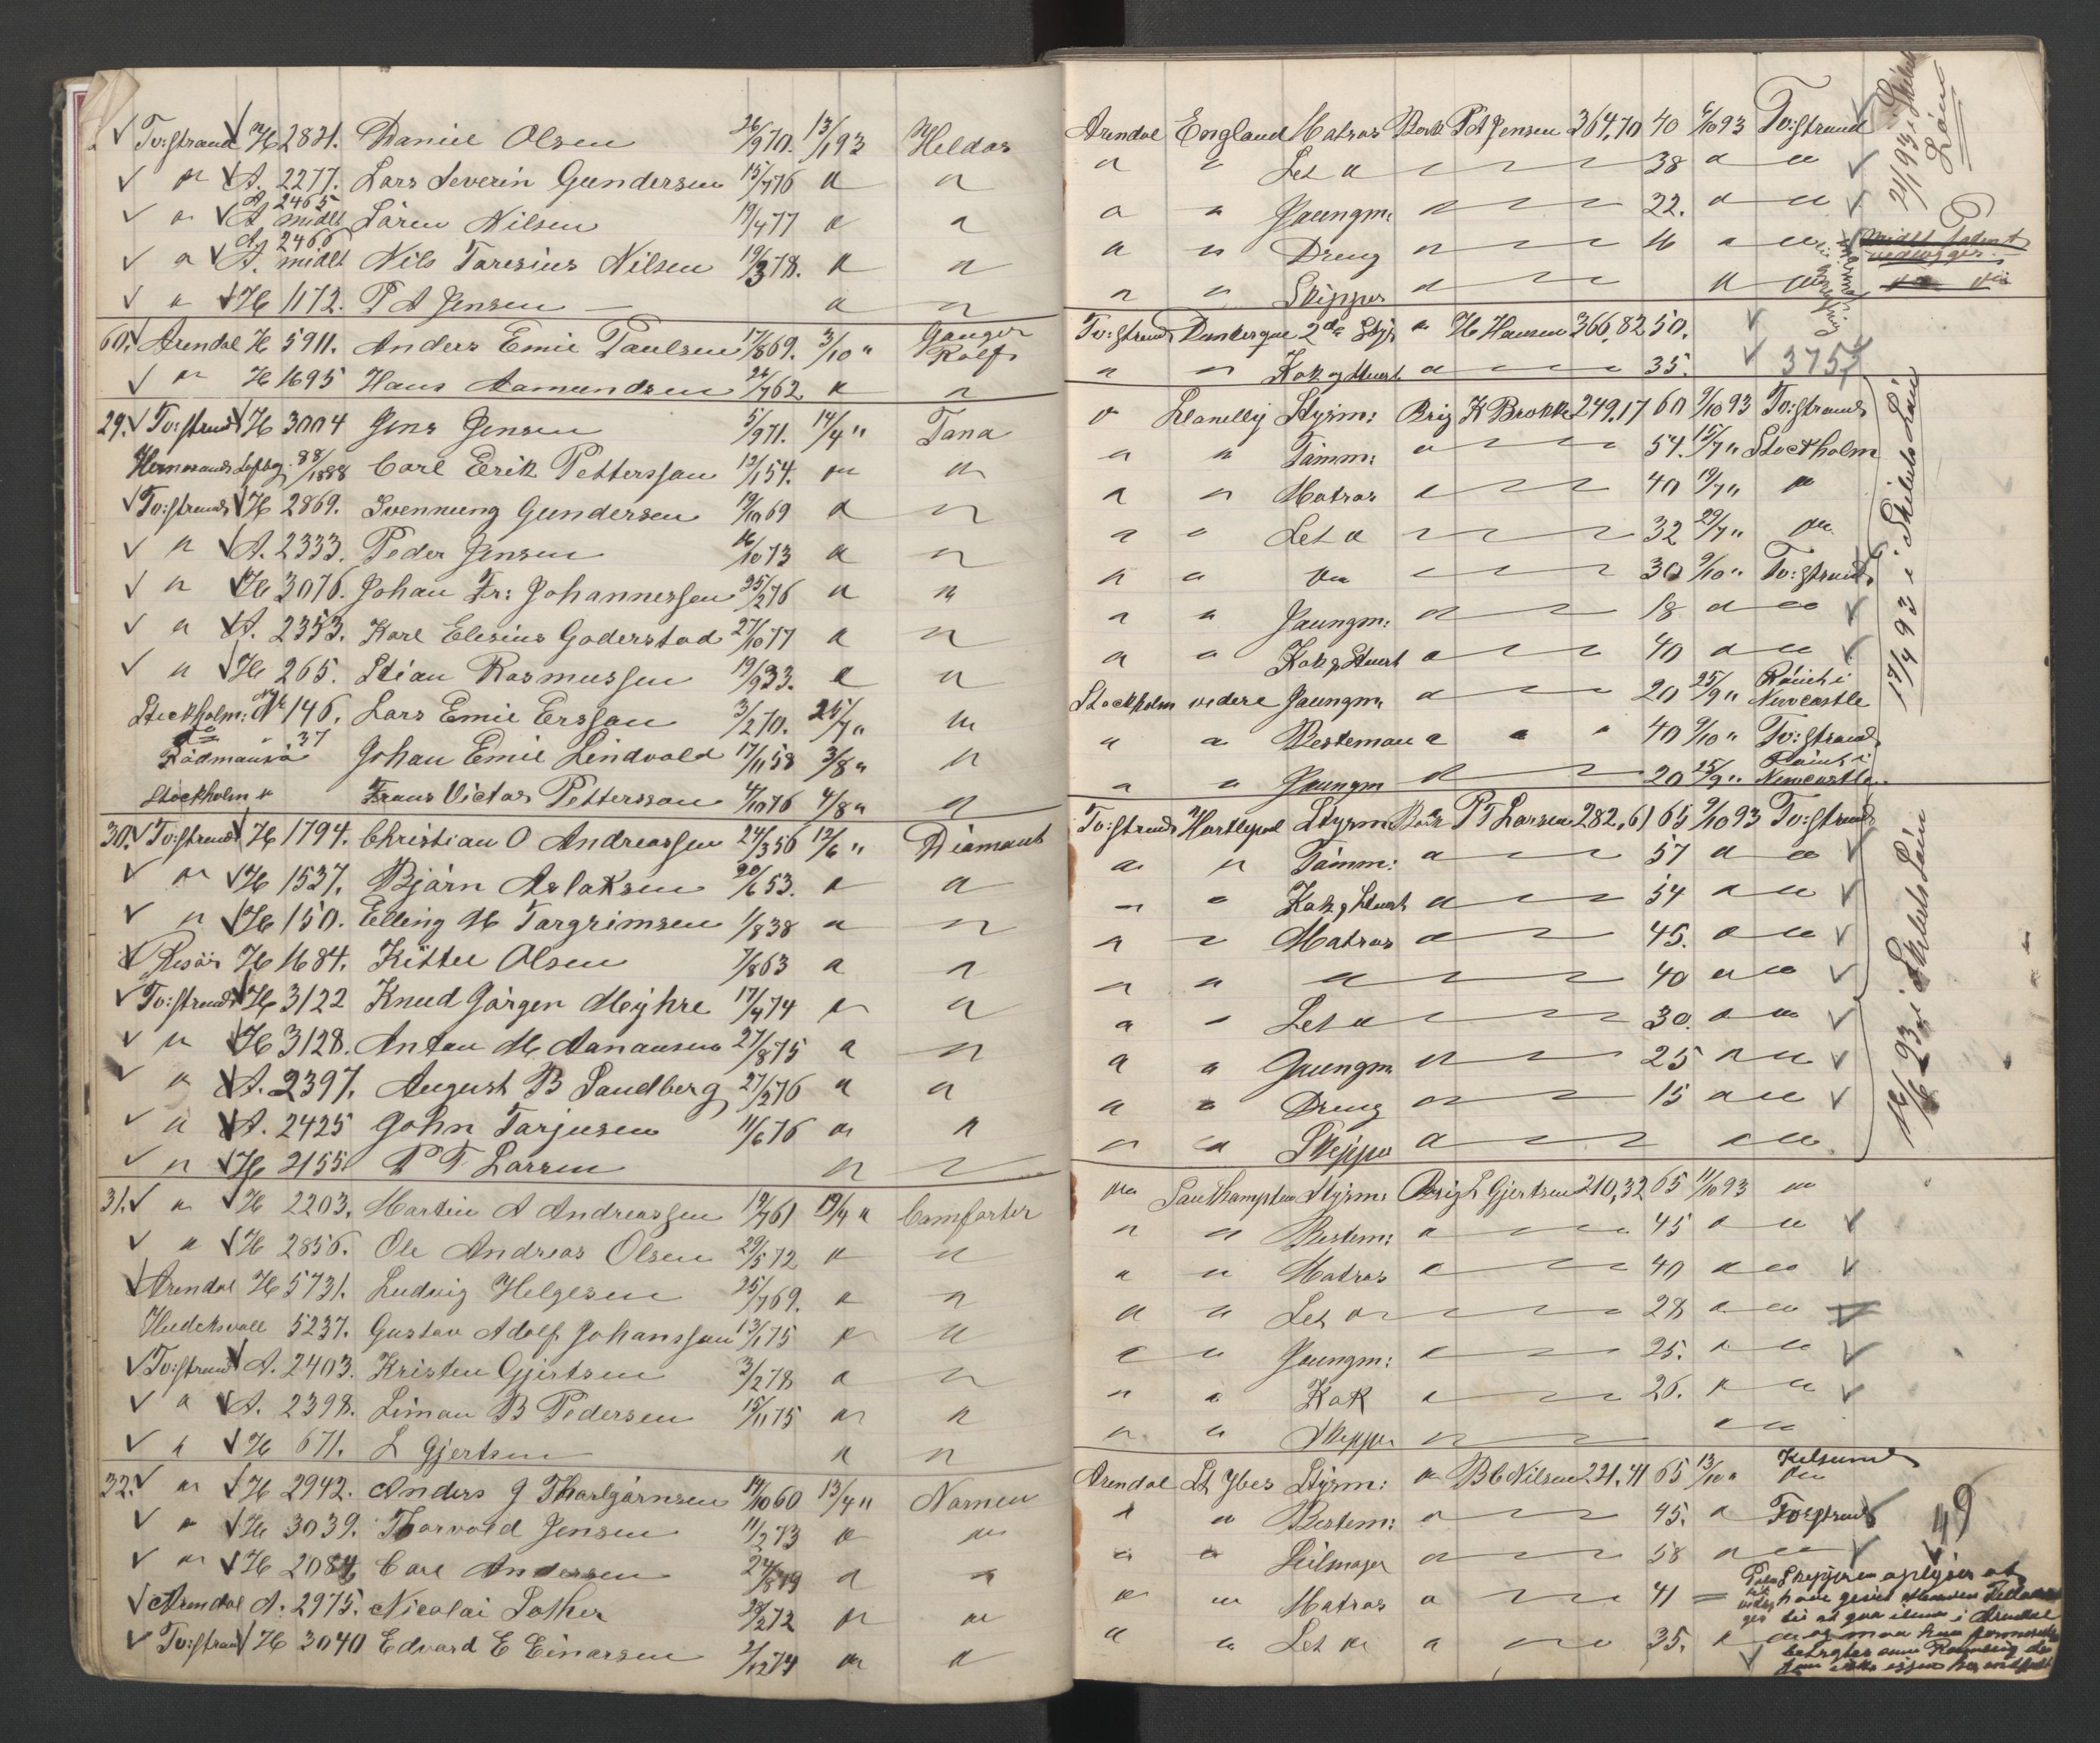 Tv:strand H 2821. Daniel Olsen 26/9 70. 13/1 93 Heldos
" A. 2277. Lars Severin Gundersen 15/7 76 " "
A. 2465
" A midlt Sören Nilsen 19/4 77 " "
A. 2466
" A. midlt Nils Taresius Nilsen 19/3 78. " "
" H 1172. P A Jensen — " "
60. Arendal H 5911. Anders Emil Paulsen 17/8 69. 3/10 " Ganger Rolf
" H 1695 Hans Aamundsen 26/7 62 " "
29. Tv:strand H 3004 Jens Jensen 5/9 71. 14/4 " Tana
88/1888 Carl Erik Pettersson 12/1 54. " "
Tv:strand H 2869. Svennung Gundersen 19/10 69 " "
" A. 2333. Peder Jensen 16/10 73 " "
" H 3076. Johan Fr: Johannessen 25/2 76 " "
" A. 2353. Karl Elesius Goderstad 27/10 77 " "
" H 265. Stian Rasmussen 19/9 33. " "
Stockholm: No 146. Lars Emil Ersson 3/2 70. 25/7 " "
Rådmansö 37 Johan Emil Lindvald 17/11 58 3/8 " "
Stockholm " Frans Victor Pettersson 4/10 76 4/8 " "
30. Tv:strand H 1794. Christian O Andreassen 24/3 56 12/6 " Diamant
" H 1537. Björn Aslaksen 20/6 53. " "
" H 150. Elling M Targrimsen 1/8 38 " "
Risör H 1684. Kittel Olsen 7/8 63 " "
Tv:strand H 3122 Knud Jörgen Meyhre 17/4 74 " "
" H 3128. Anton M Aanansen 27/8 75 " "
" A. 2397. August B Sandberg 27/2 76 " "
" A. 2425 John Tarjusen 11/6 76 " "
" H 2155 P T Larsen " "
31. " H 2203. Martin A Andreassen 19/7 61 19/4 " Comforter
" H 2856. Ole Andreas Olsen 29/5 72 " "
Arendal H 5731. Ludvig Helgesen 25/7 69. " "
Hudiksvall 5237. Gustav Adolf Johansson 13/1 75 " "
Tv:strand A. 2403. Kristen Gjertsen 3/2 78 " "
" A. 2398. Simon B Pedersen 15/11 75 " "
" H 671. L Gjertsen " "
32. " H 2942. Anders J Tharbjörnsen 14/10 60 13/4 " Nornen
" H 3039. Thorvald Jensen 11/2 73 " "
" H 2084 Carl Andersen " "
Arendal A. 2975. Nicolai Sother 28/2 72 " "
Tv:strand H 3040 Edvard E Einarsen 2/12 74 " "
Arendal England Matros Bark P A Jensen 364,70 40 6/10 93 Tv:strand
" " Let " 38 " "
" " Jaungm: " 22. " "
" " Dreng " 16 " "
" " Skipper " " "
Tv:strand Dunkerque 2de Styr " H Hansen 366,82 50.
" " Kok og Stuert " 35. 3757
" Llanelly Styrm: Brig K Brokke 249,17 60 9/10 93 Tv:strand
" " Tömm: " 54. 15/7 " Stockholm
" " Matros " 40 19/7 " "
" " Let " 32 29/7 " "
" " " 30 9/10 " Tv:strand
" " Jaungm: " 18 " "
" " Kok og Stuert " 40 " "
Stockholm videre Jaungm " 20 25/9 " Römt i Newcastle
" " Besteman " " " 40 9/10 " Tv:strand
" " Jaungm " 20 25/9 " Römt i Newcastle
Tv:strand Hartlepool Styrm Bark P T Larsen 282,61 65 9/10 93 Tv:strand
" " Tömm: " 57 " "
" " Kok og Stuert " 54 " "
" " Matros " 45. " "
" " " 40 " "
" " Let " 30. " "
" " Jaungm " 25 " "
" " Dreng " 15 " "
" " Skipper " " "
" Southampton Styrm: Brig L Gjertsen 210,32 65 11/10 93 "
" " Bestem: " 45 " "
" " Matros " 40 " "
" " Let " 28 " "
" " Jaungm: " 25. " "
" " Kok " 26. " "
" " Skipper " " "
Arendal St Ybes Styrm: " B C Nilsen 221,41 65 13/10 "
" " Bestem: " 45. " Tv:strand
" " Seilmager " 58 " "
" " Matros " 41
" " Let " " 35. " "
17/4 93 i Skibets Lön
16/6 93 i Skibets Lön
49